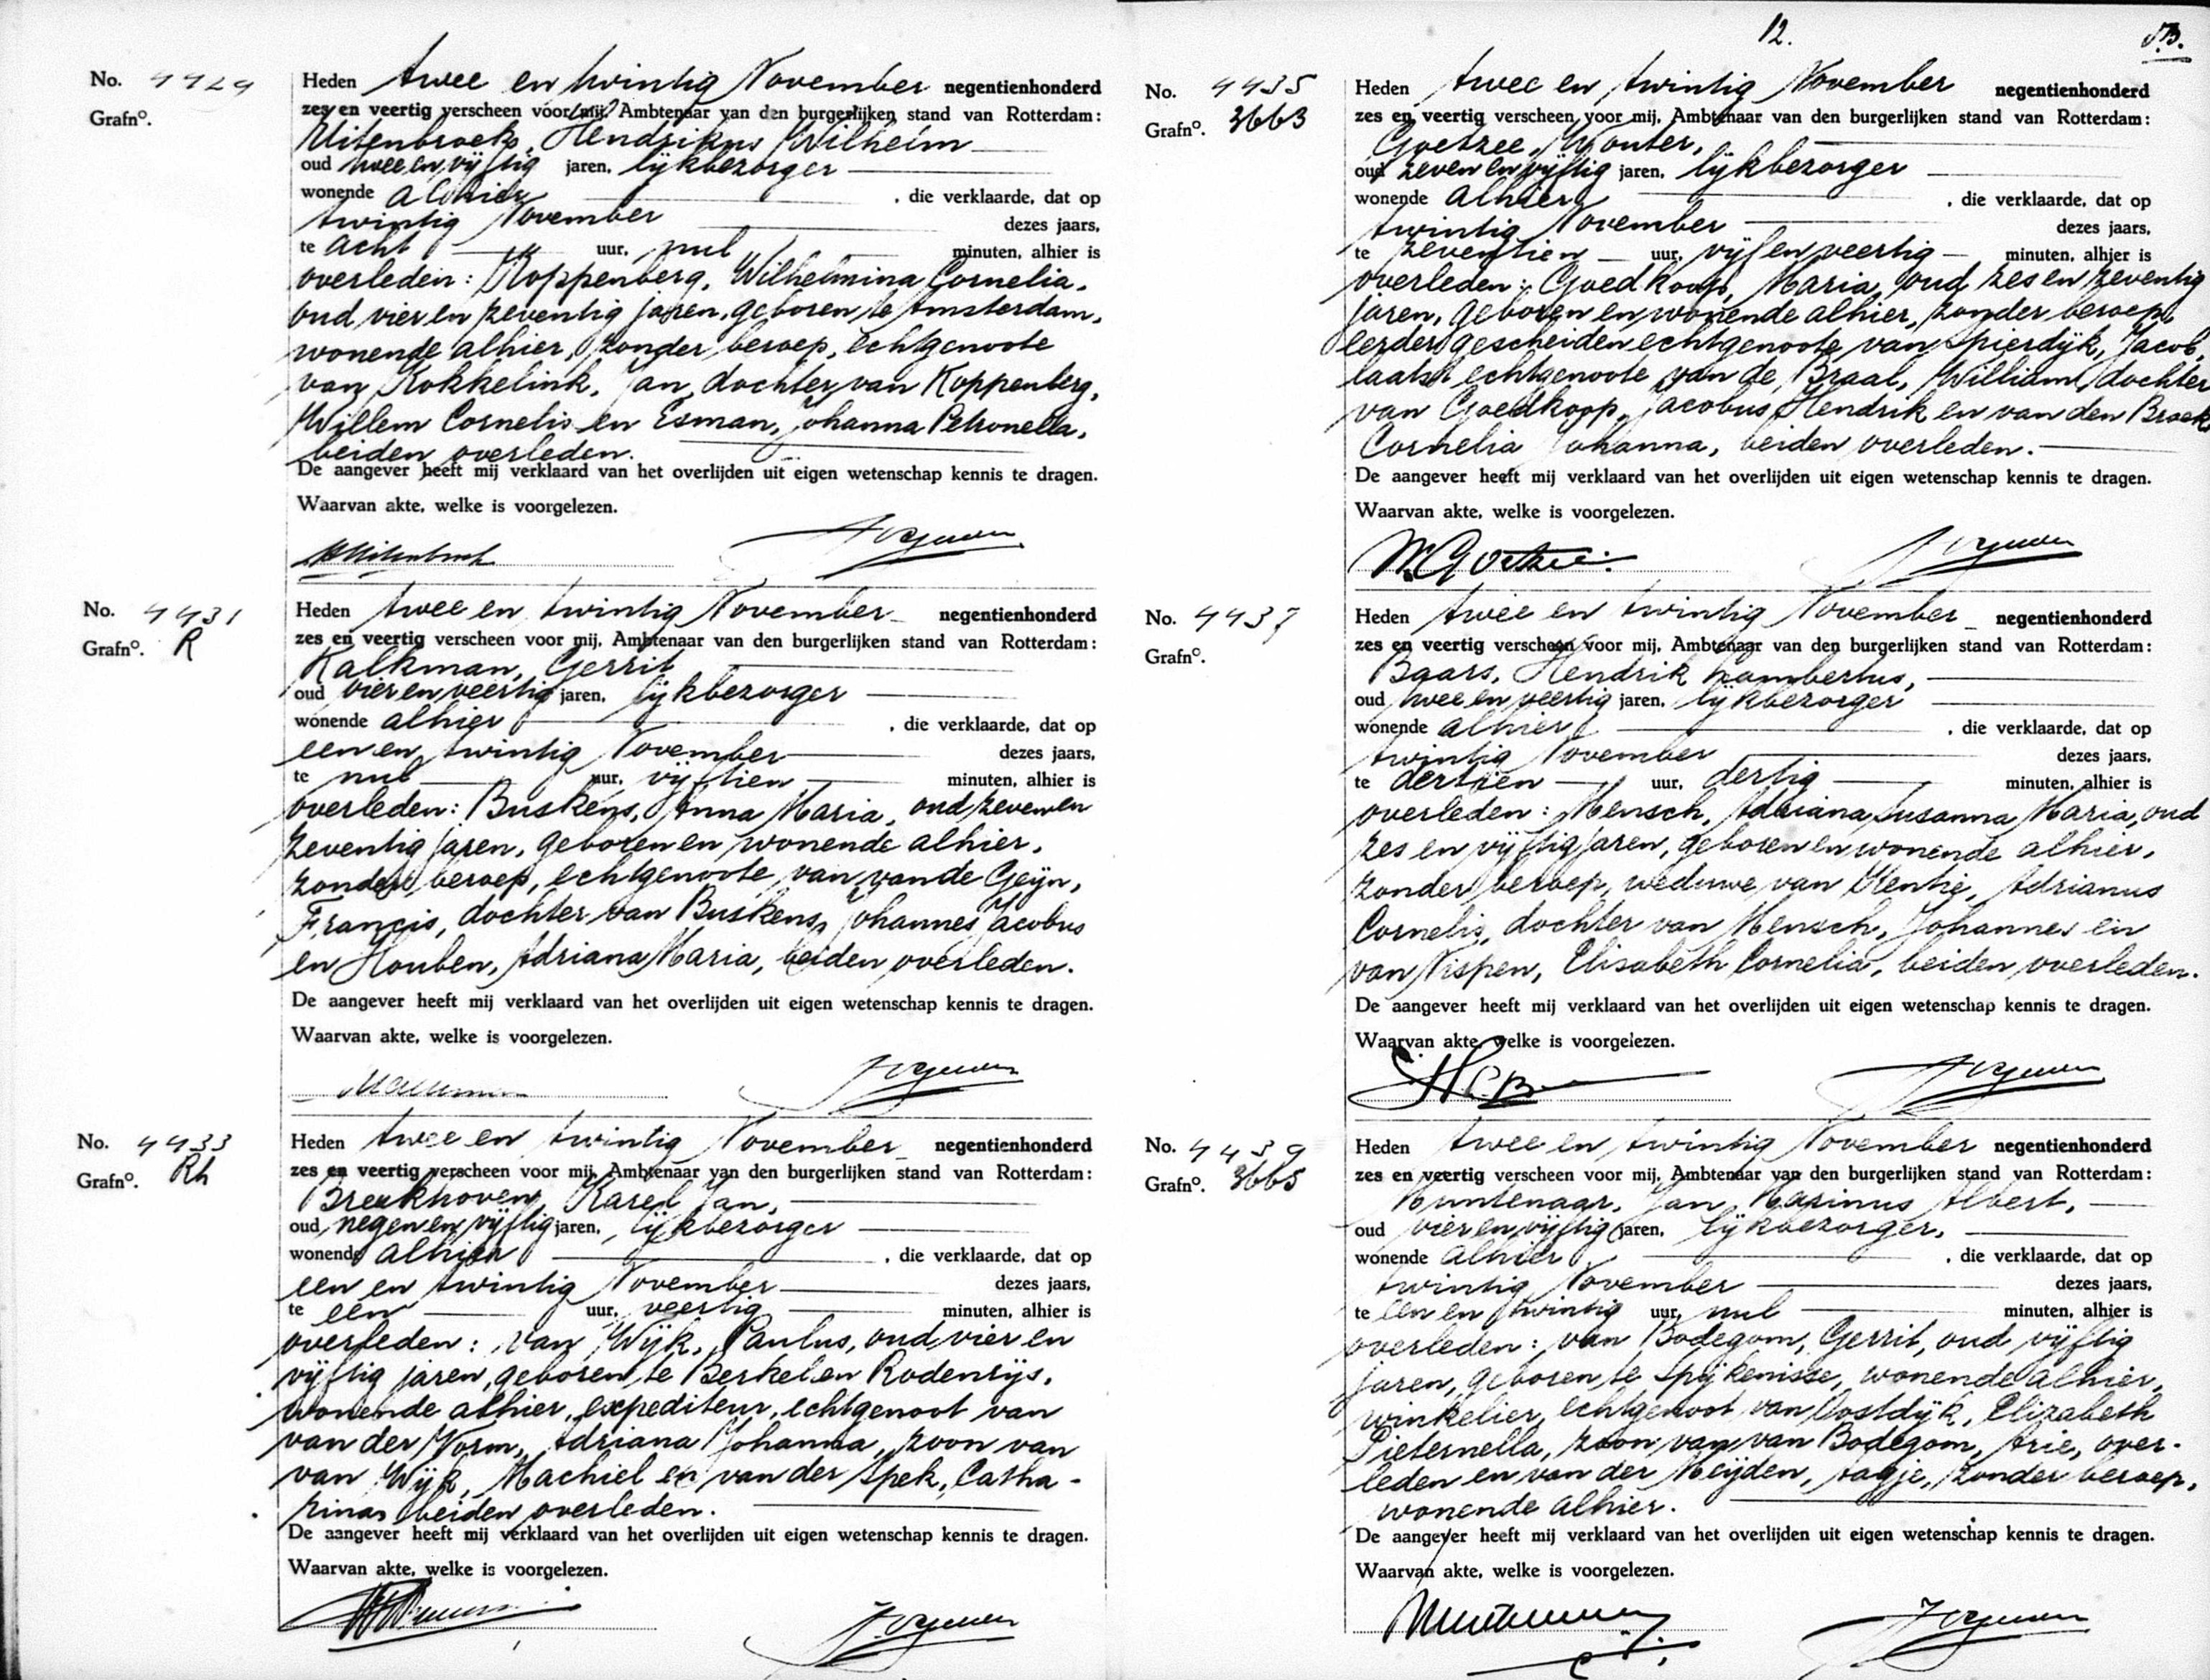 No. 4429
Grafno.
Heden twee en twintig November negentienhonderd
zes en veertig verscheen voor mij, Ambtenaar van den burgerlijken stand van Rotterdam:
Uitenbroek, Hendrikus Wilhelm
oud twee en vijftig jaren, lijkbezorger
wonende alhier, die verklaarde, dat op
twintig November dezes jaars,
te acht uur, nul minuten, alhier is
overleden: Koppenberg, Wilhelmina Cornelia,
oud vier en zeventig jaren, geboren te Amsterdam,
wonende alhier, zonder beroep, echtgenoote
van Kokkelink, Jan, dochter van Koppenberg,
Willem Cornelis en Esman, Johanna Petronella,
beiden overleden.
De aangever heeft mij verklaard van het overlijden uit eigen wetenschap kennis te dragen.
Waarvan akte, welke is voorgelezen.
No. 4431
Grafno. R
Heden twee en twintig November negentienhonderd
zes en veertig verscheen voor mij, Ambtenaar van den burgerlijken stand van Rotterdam:
Kalkman, Gerrit
oud vier en veertig jaren, lijkbezorger
wonende alhier, die verklaarde, dat op
een en twintig November dezes jaars,
te nul uur, vijftien minuten, alhier is
overleden: Buskens, Anna Maria, oud zeven en
zeventig jaren, geboren en wonende alhier,
zonder beroep, echtgenoote van van de Geijn,
Francis, dochter van Buskens, Johannes Jacobus
en Houben, Adriana Maria, beiden overleden.
De aangever heeft mij verklaard van het overlijden uit eigen wetenschap kennis te dragen.
Waarvan akte, welke is voorgelezen.
No. 4433
Grafno. Rh
Heden twee en twintig November negentienhonderd
zes en veertig verscheen voor mij, Ambtenaar van den burgerlijken stand van Rotterdam:
Breukhoven, Karel Jan,
oud negen en vijftig jaren, lijkbezorger
wonende alhier, die verklaarde, dat op
een en twintig November dezes jaars,
te een uur, veertig minuten, alhier is
overleden: van Wijk, Paulus, oud vier en
vijftig jaren, geboren te Berkel en Rodenrijs,
wonende alhier, expediteur, echtgenoot van
van der Worm, Adriana Johanna, zoon van
van Wijk, Machiel en van der Spek, Catha-
rina, beiden overleden.
De aangever heeft mij verklaard van het overlijden uit eigen wetenschap kennis te dragen.
Waarvan akte, welke is voorgelezen.
12.
No. 4435
Grafno. 3663
Heden twee en twintig November negentienhonderd
zes en veertig verscheen voor mij, Ambtenaar van den burgerlijken stand van Rotterdam:
Goetzee, Wouter,
oud zeven en vijftig jaren, lijkbezorger
wonende alhier, die verklaarde, dat op
twintig November dezes jaars,
te zeventien uur, vijf en veertig minuten, alhier is
overleden: Goedkoop, Maria, oud zes en zeventig
jaren, geboren en wonende alhier, zonder beroep,
eerder gescheiden echtgenoote van Spierdijk, Jacob,
laatst echtgenoote van de Braal, William, dochter
van Goedkoop, Jacobus Hendrik en van den Broek,
Cornelia Johanna, beiden overleden.
De aangever heeft mij verklaard van het overlijden uit eigen wetenschap kennis te dragen.
Waarvan akte, welke is voorgelezen.
W. Goetzee.
No. 4437
Grafno.
Heden twee en twintig November negentienhonderd
zes en veertig verscheen voor mij, Ambtenaar van den burgerlijken stand van Rotterdam:
Baars, Hendrik Lambertus,
oud twee en veertig jaren, lijkbezorger
wonende alhier, die verklaarde, dat op
twintig November dezes jaars,
te dertien uur, dertig minuten, alhier is
overleden: Mensch, Adriana Susanna Maria, oud
zes en vijftig jaren, geboren en wonende alhier,
zonder beroep, weduwe van Kentie, Adrianus
Cornelis, dochter van Mensch, Johannes en
van Nispen, Elisabeth Cornelia, beiden overleden.
De aangever heeft mij verklaard van het overlijden uit eigen wetenschap kennis te dragen.
Waarvan akte, welke is voorgelezen.
No. 4439
Grafno. 3665
Heden twee en twintig November negentienhonderd
zes en veertig verscheen voor mij, Ambtenaar van den burgerlijken stand van Rotterdam:
Muntenaar, Jan Marinus Albert,
oud vier en vijftig jaren, lijkbezorger,
wonende alhier, die verklaarde, dat op
twintig November dezes jaars,
te een en twintig uur, nul minuten, alhier is
overleden: van Bodegom, Gerrit, oud vijftig
jaren, geboren te Spijkenisse, wonende alhier,
winkelier, echtgenoot van Oostdijk, Elizabeth
Pieternella, zoon van van Bodegom, Arie, over-
leden en van der Meijden, Aagje, zonder beroep,
wonende alhier.
De aangever heeft mij verklaard van het overlijden uit eigen wetenschap kennis te dragen.
Waarvan akte, welke is voorgelezen.